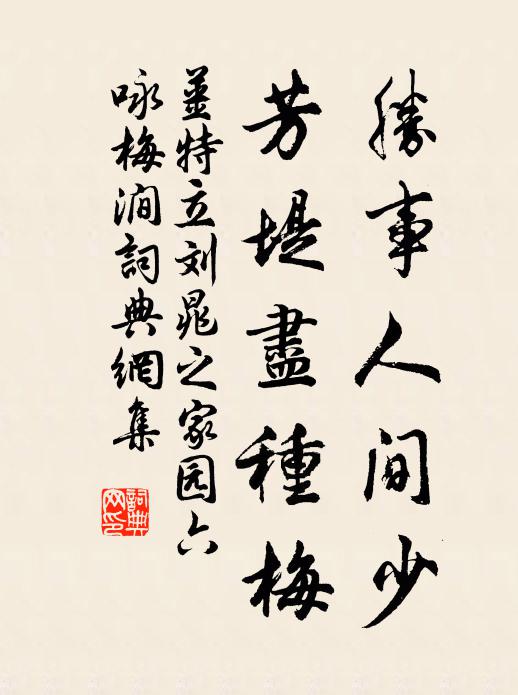 勝事人间少
芳堤盡種梅
姜特立刘晁之家园六
咏梅澗詞典網集
詞典网印